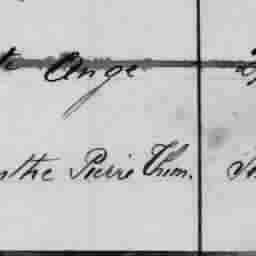 te Ange
nthe Pierre Thim.